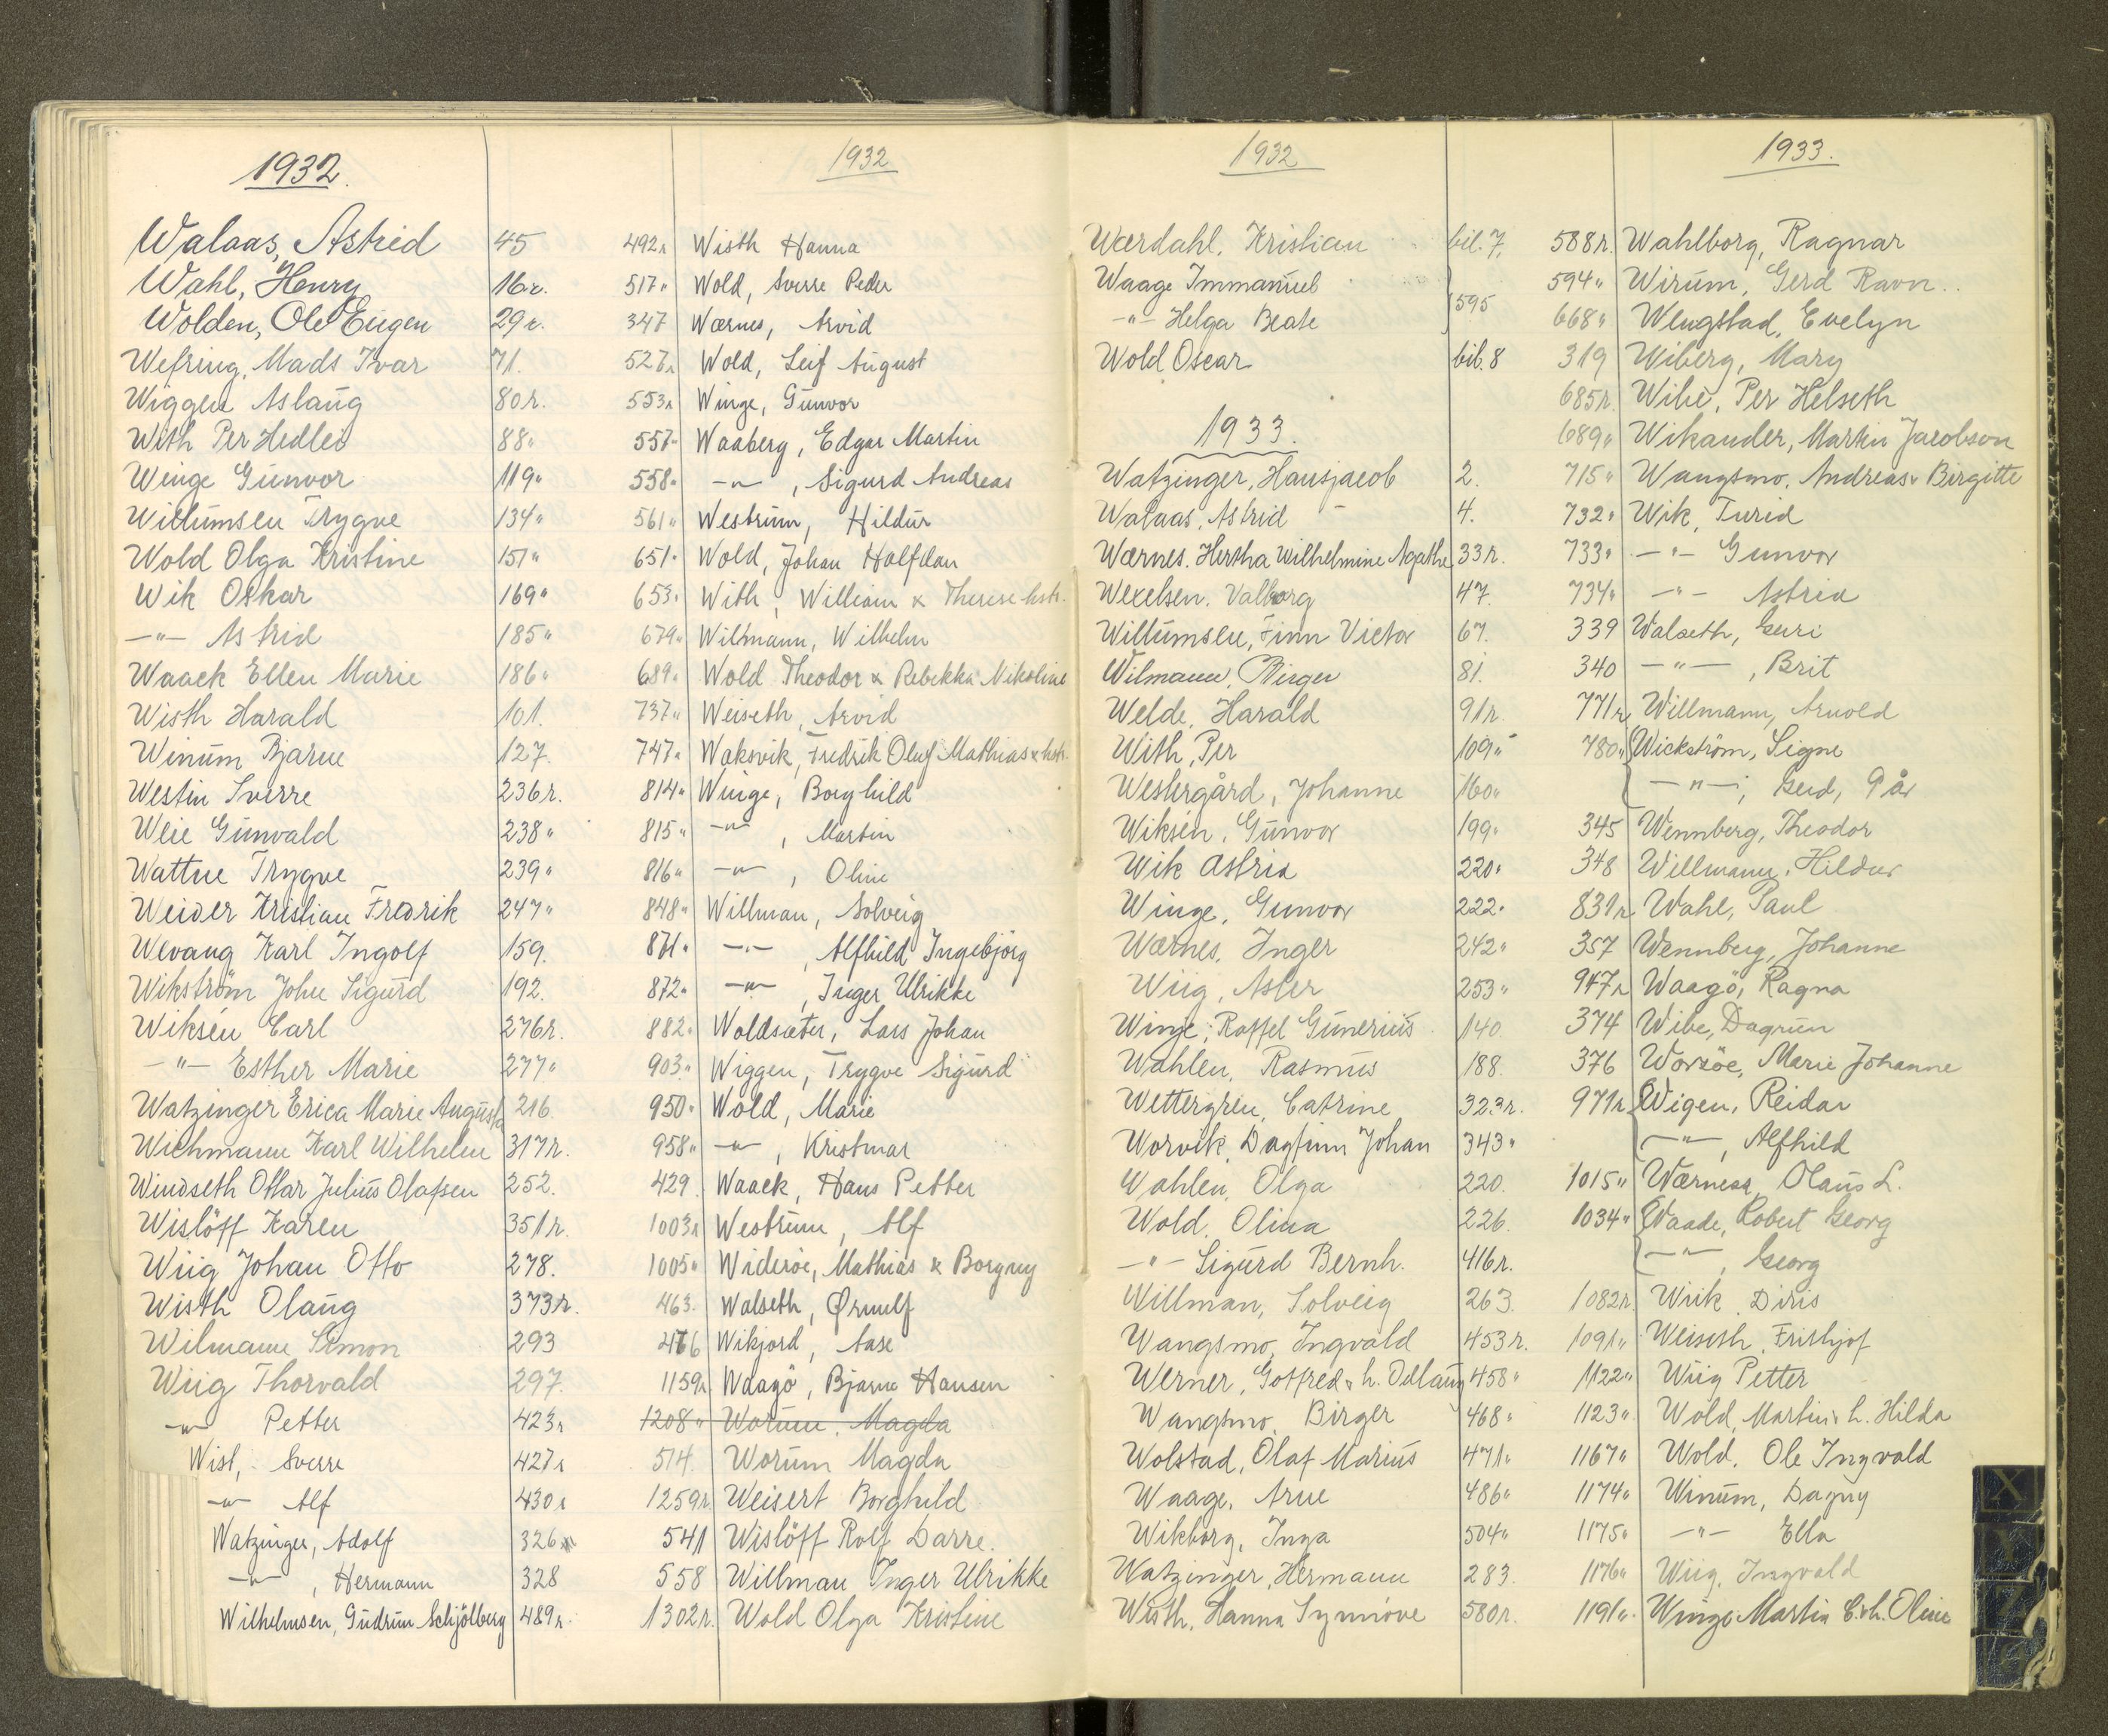 1932.
Walaas, Astrid 45
Wahl, Henry 16r.
Wolden, Ole Eugen 29r.
Wefring, Mads Ivar 71.
Wiggen Aslaug 80r.
With Per Hedlei 88"
Winge Gunvor 119"
Willumsen Trygve 134"
Wold Olga Kristine 151"
Wik Oskar 169"
—"— Astrid 185"
Waack Ellen Marie 186"
Wisth Harald 101.
Winum Bjarne 127.
Westin Sverre 236r.
Weie Gunvald 238"
Wattne Trygve 239"
Weider Kristian Fredrik 247"
Wevang Karl Ingolf 159.
Wikström John Sigurd 192.
Wiksén Carl 276r.
—"— Esther Marie 277"
Watzinger Erica Marie Augusta 216.
Wichmann Karl Wilhelm 317r.
Windseth Ottar Julius Olafsen 252.
Wislöff Karen 351r.
Wiig Johan Otto 278.
Wisth Olaug 373r.
Wilmann Simon 293
Wiig Thorvald 297.
—"— Petter 423r
Wist, Sverre 427r
—"— Alf 430r
Watzinger, Adolf 326
—"— , Hermann 328
Wilhelmsen, Gudrun Schjölberg 489r.
1932
492r Wisth Hanna
517" Wold, Sverre Peder
347 Wærnes, Arvid
527r Wold, Leif August
553r Winge, Gunvor
557" Waaberg, Edgar Martin
558" —"— , Sigurd Andreas
561" Westrum, Hildur
651" Wold, Johan Halfdan
653" With, William & Therese hstr.
679" Wilmann, Wilhelm
689" Wold Theodor & Rebekka Nikoline
737" Weiseth, Arvid
747" Waksvik, Fredrik Oluf Mathias & hstr.
814" Winge, Borghild
815" —"— , Martin
816" —"— , Oline
848" Willman, Solveig
871" —"— , Alfhild Ingebjörg
872" —"— , Inger Ulrikke
882" Woldsæter, Lars Johan
903" Wiggen, Trygve Sigurd
950" Wold, Marie
958" —"— , Kristmar
429. Waack, Hans Petter
1003r Westrum, Alf
1005" Wideröe, Mathias & Borgny
463. Walseth, Ørnulf
466 Wikjord, Aase
1159r. Waagö, Bjarne Hansen
1208" Worum, Magda
514. Worum Magda
1259r. Weisert Borghild
541 Wislöff Rolf Darre.
558 Willman Inger Ulrikke
1302r. Wold Olga Kristine
1932
Wærdahl, Kristian bil. 7.
Waage Immanuel
—"— Helga Beate } 595
Wold Oscar bil. 8
1933.
Watzinger, Hansjacob 2.
Walaas, Astrid 4.
Wærnes, Hertha Wilhelmine Agathe 33r.
Wexelsen, Valborg 47.
Willumsen, Finn Victor 67.
Wilmann, Birger 81.
Welde, Harald 91r.
With, Per 109"
Westergård, Johanne 160"
Wiksén, Gunvor 199"
Wik Astrid 220"
Winge, Gunvor 222"
Wærnes, Inger 242"
Wiig, Asler 253"
Winje, Raffel Gunerius 140.
Wahlen, Rasmus 188.
Wettergren, Catrine 323r.
Worvik, Dagfinn Johan 343"
Wahlen, Olga 220.
Wold, Olina 226.
—"— Sigurd Bernh. 416r.
Willman, Solveig 263.
Wangsmo, Ingvald 453r.
Werner, Gotfred & h. Odlaug 458"
Wangsmo, Birger 468"
Wolstad, Olaf Marius 471"
Waage, Arne 486"
Wikborg, Inga 504"
Watzinger, Hermann 283.
Wisth, Hanna Synnöve 580r.
1933.
588r. Wahlborg, Ragnar
594" Wirum, Gerd Ravn
668" Wengstad, Evelyn
319 Wiberg, Mary
685r. Wibe, Per Helseth
689" Wikander, Martin Jacobson
715" Wangsmo, Andreas & Birgitte
732" Wik, Turid
733" —"— Gunvor
734" —"— Astrid
339 Walseth, Guri
340 —"— , Brit
771r Willmann, Arnold
780" Wickström, Signe
—"— , Gerd, 9 år
345 Wennberg, Theodor
348 Willmann, Hildur
831r Wahl, Paul
357 Wennberg, Johanne
947r Waagö, Ragna
374 Wibe, Dagrun
376 Worsöe, Marie Johanne
971r Wigen, Reidar
—"— , Alfhild
1015" Wærness, Olaus L.
1034" Waade, Robert Georg
—"— , Georg
1082r. Wiik, Diris
1091" Weiseth, Frithjof
1122" Wiig Petter
1123" Wold, Martin & h. Hilda
1167" Wold, Ole Ingvald
1174" Winum, Dagny
1175" —"— Ella
1176" Wiig, Ingvald
1191". Winge Martin C. & h. Oline
X
Y
Z